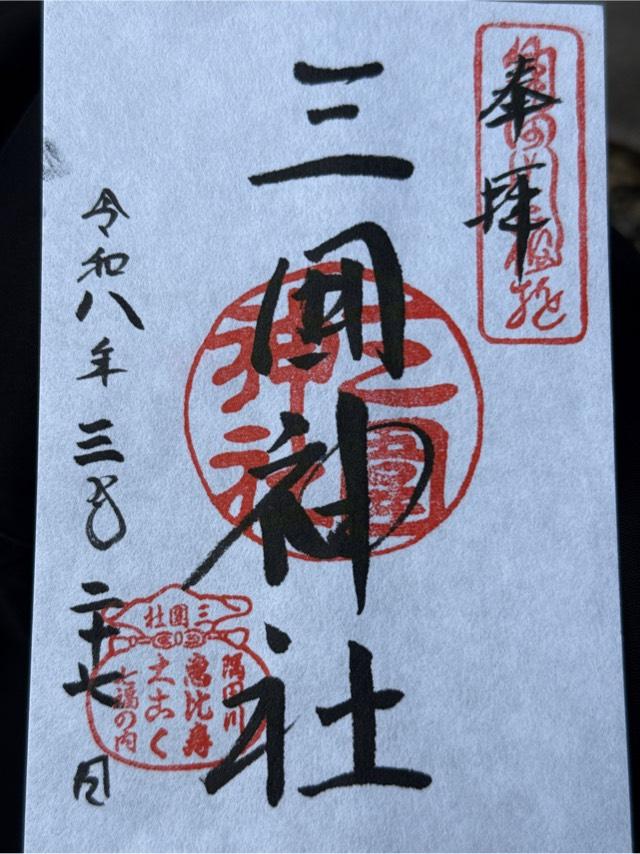 奉拝
三囲神社
三圍神社
令和八年三月二十七日
三圍社
隅田川
惠比寿
大こく
七福の内